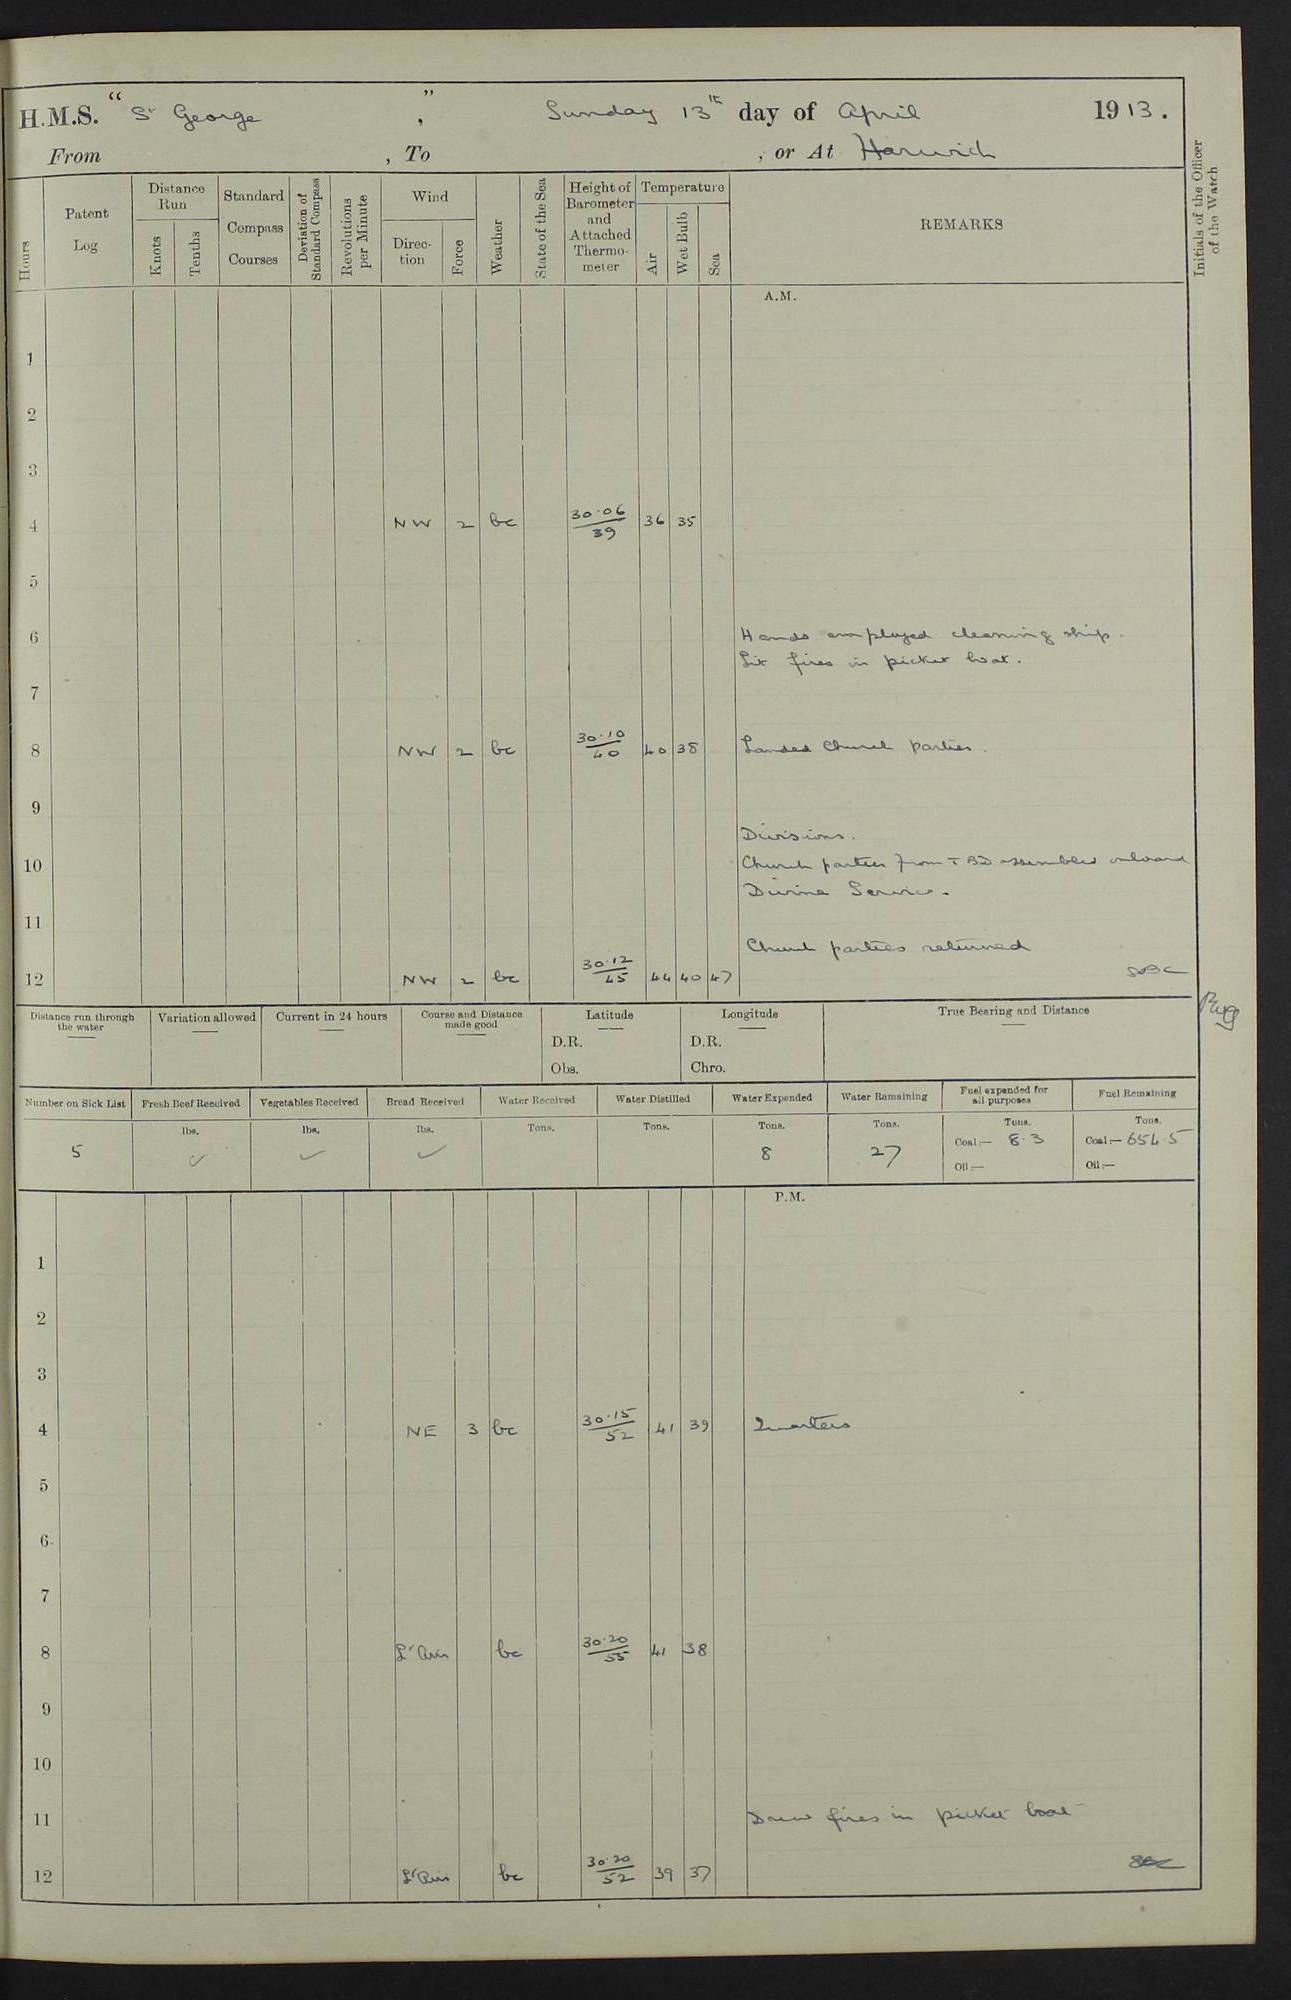 H.M.S. “ St George ”, Sunday 13th day of April 1913.
From , To , or At Harwich
Hours
Patent Log
Distance Run
Knots
Tenths
Standard Compass Courses
Deviation of Standard Compass
Revolutions per Minute
Wind
Direction
Force
Weather
State of the Sea
Height of Barometer and Attached Thermometer
Temperature
Air
Wet Bulb
Sea
REMARKS
Initials of the Officer of the Watch
A.M.
1
2
3
4 NW 2 bc 30.06/39 36 35
5
6 Hands employed cleaning ship.
Lit fires in picket boat.
7
8 NW 2 bc 30.10/40 40 38 Landed Church parties.
9
Divisions.
10 Church parties from TBD assembled onboard
Divine Service.
11
Church parties returned
12 NW 2 bc 30.12/45 44 40 47
Distance run through the water
Variation allowed
Current in 24 hours
Course and Distance made good
Latitude
D.R.
Obs.
Longitude
D.R.
Chro.
True Bearing and Distance
Number on Sick List
Fresh Beef Received
Vegetables Received
Bread Received
Water Received
Water Distilled
Water Expended
Water Remaining
Fuel expended for all purposes
Fuel Remaining
lbs. lbs. lbs. Tons. Tons. Tons. Tons. Tons. Tons.
5 ✓ ✓ ✓ 8 27 Coal:— 8.3 Coal:— 654.5
Oil:— Oil:—
P.M.
1
2
3
4 NE 3 bc 30.15/52 41 39 Quarters
5
6
7
8 Lt Airs bc 30.20/55 41 38
9
10
11 Drew fires in picket boat
12 Lt Airs bc 30.20/52 39 37